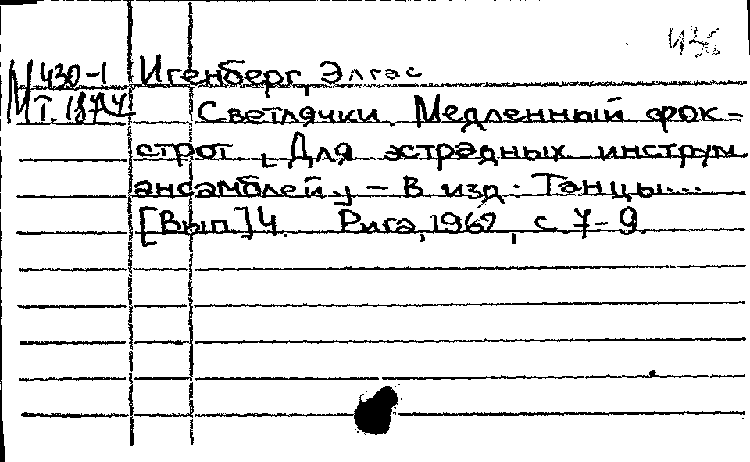 436
М 430-1 Игенберг, Элгас
Светлячки. Медленный фок-
строт. [Для эстрадных инструм.
ансамблей]. – В изд.: Танцы...
[Вып.] 4. Рига, 1962, с. 7-9.